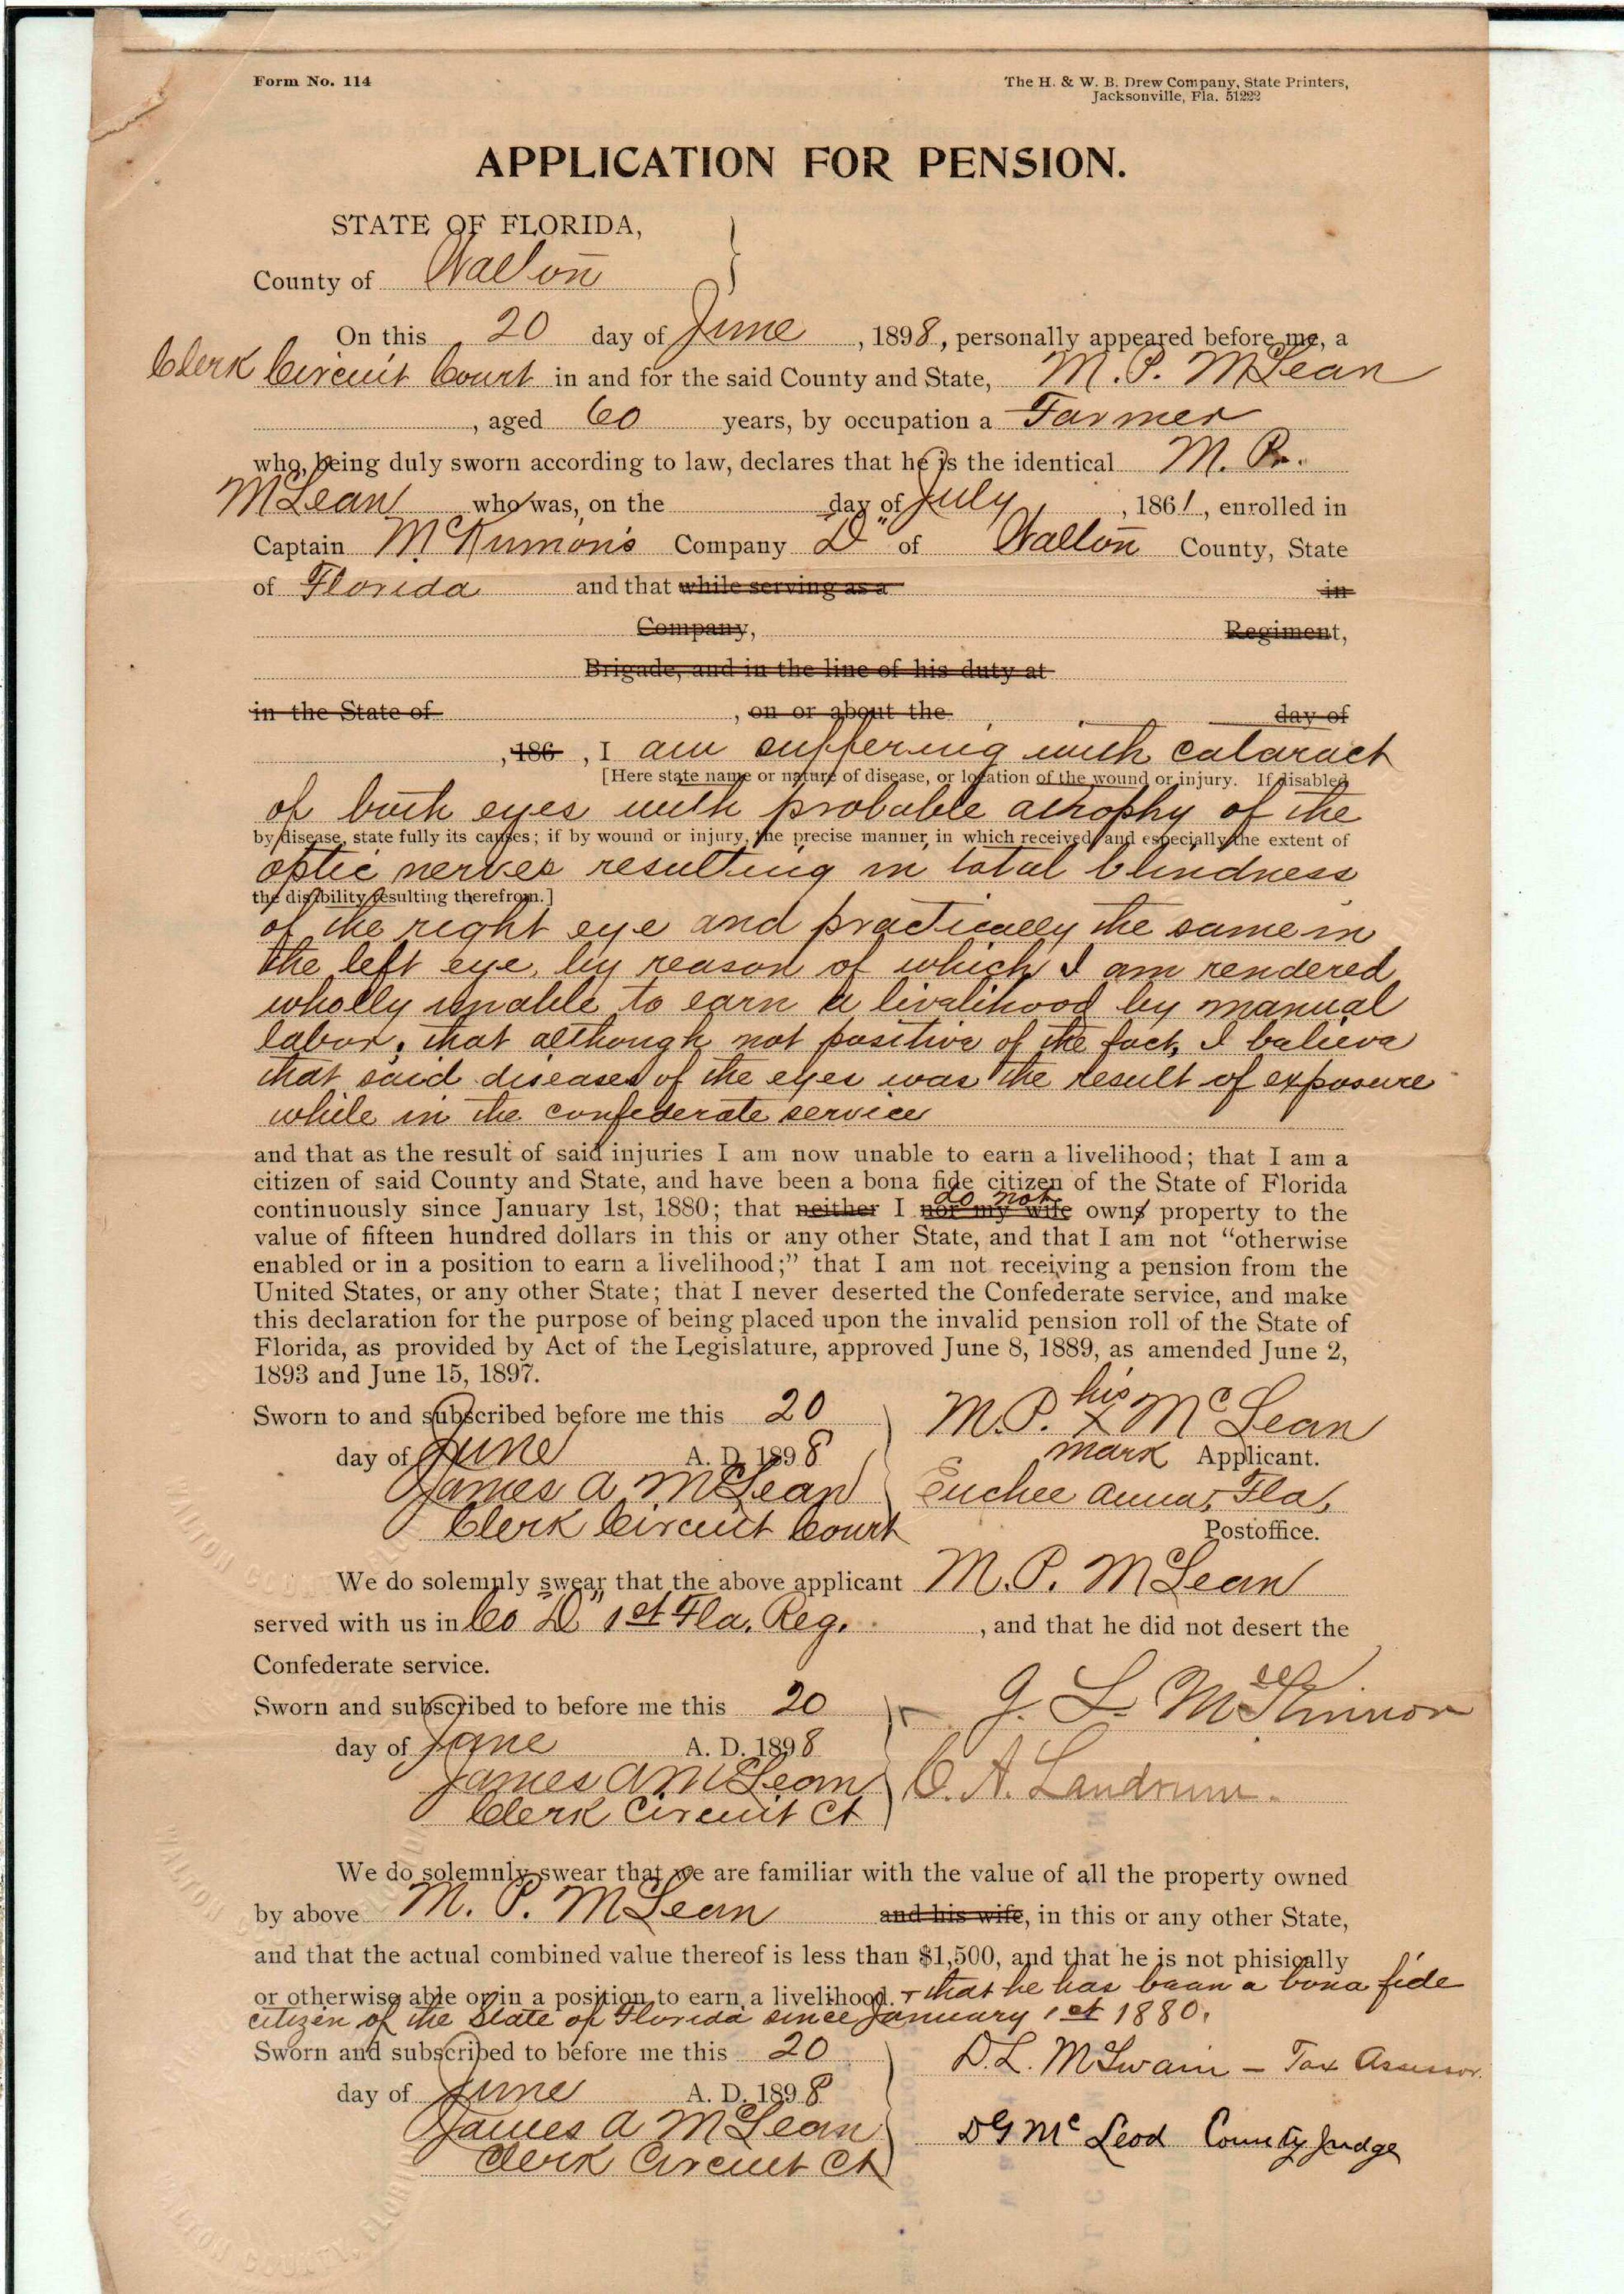 Form No. 114
The H. & W. B. Drew Company, State Printers,
Jacksonville, Fla. 51222
APPLICATION FOR PENSION.
STATE OF FLORIDA,
County of Walton
On this 20 day of June, 1898, personally appeared before me, a
Clerk Circuit Court in and for the said County and State, M. P. McLean
, aged 60 years, by occupation a Farmer
who, being duly sworn according to law, declares that he is the identical M. P.
McLean who was, on the day of July, 1861, enrolled in
Captain McKinnon's Company "D" of Walton County, State
of Florida and that while serving as a in
Company, Regiment,
Brigade, and in the line of his duty at
in the State of , on or about the day of
, 186 , I am suffering with cataract
[Here state name or nature of disease, or location of the wound or injury. If disabled
of both eyes with probable atrophy of the
by disease, state fully its causes; if by wound or injury, the precise manner, in which received, and especially the extent of
optic nerves resulting in total blindness
the disability resulting therefrom.]
of the right eye and practically the same in
the left eye, by reason of which I am rendered
wholly unable to earn a livelihood by manual
labor, that although not positive of the fact, I believe
that said diseases of the eyes was the result of exposure
while in the confederate service
and that as the result of said injuries I am now unable to earn a livelihood; that I am a
citizen of said County and State, and have been a bona fide citizen of the State of Florida
continuously since January 1st, 1880; that neither I nor my wife do not owns property to the
value of fifteen hundred dollars in this or any other State, and that I am not "otherwise
enabled or in a position to earn a livelihood;" that I am not receiving a pension from the
United States, or any other State; that I never deserted the Confederate service, and make
this declaration for the purpose of being placed upon the invalid pension roll of the State of
Florida, as provided by Act of the Legislature, approved June 8, 1889, as amended June 2,
1893 and June 15, 1897.
Sworn to and subscribed before me this 20
day of June A. D. 1898
James A McLean
Clerk Circuit Court
M.P. his x mark McLean
Applicant.
Euchee Anna, Fla,
Postoffice.
We do solemnly swear that the above applicant M. P. McLean
served with us in Co "D" 1st Fla. Reg. , and that he did not desert the
Confederate service.
Sworn and subscribed to before me this 20
day of June A. D. 1898
James A McLean
Clerk Circuit Ct
J. L. McKinnon
C. A. Landrum.
We do solemnly swear that we are familiar with the value of all the property owned
by above M. P. McLean and his wife, in this or any other State,
and that the actual combined value thereof is less than $1,500, and that he is not phisically
or otherwise able or in a position to earn a livelihood. + that he has been a bona fide
citizen of the State of Florida since January 1st 1880.
Sworn and subscribed to before me this 20
day of June A. D. 1898
James A McLean
Clerk Circuit Ct
D. L. McSwain - Tax Assessor.
D G McLeod County Judge